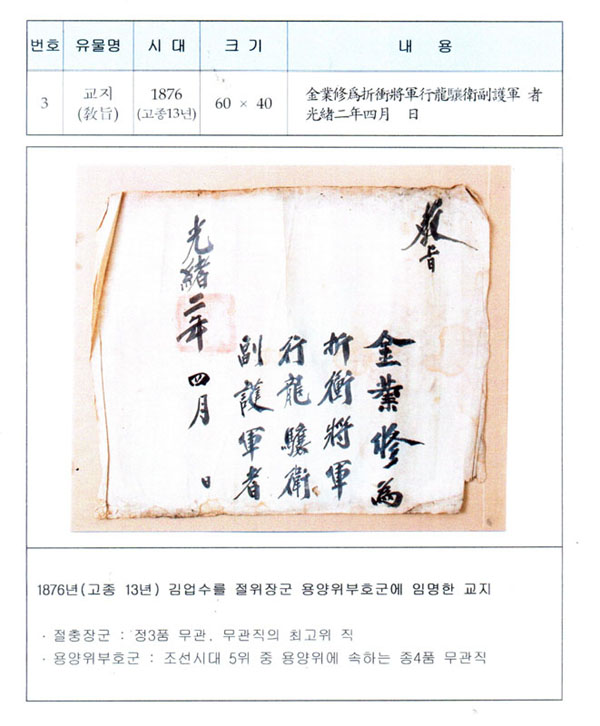 번호 유물명 시 대 크 기 내 용
3 교지 (敎旨) 1876 (고종13년) 60 × 40 金業修爲折衝將軍行龍驤衛副護軍 者
光緖二年四月 日
敎旨
金業修爲
折衝將軍
行龍驤衛
副護軍者
光緖二年 四月 日
1876년(고종 13년) 김업수를 절위장군 용양위부호군에 임명한 교지
· 절충장군 : 정3품 무관, 무관직의 최고위 직
· 용양위부호군 : 조선시대 5위 중 용양위에 속하는 종4품 무관직